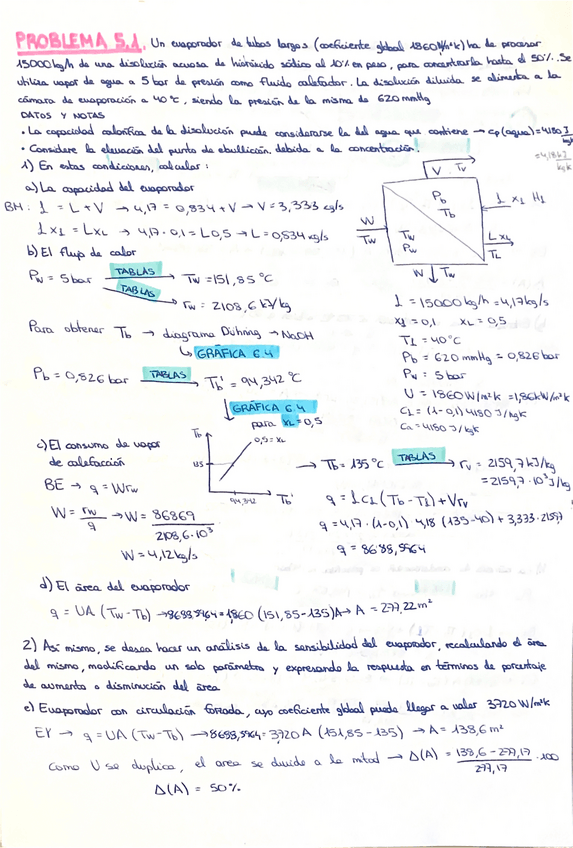 PROBLEMA 5.1. Un evaporador de tubos largos (coeficiente global 1860 W/m²k) ha de procesar
15000 kg/h de una disolución acuosa de hidróxido sódico al 10% en peso, para concentrarla hasta el 50%. Se
utiliza vapor de agua a 5 bar de presión como fluido calefactor. La disolución diluida se alimenta a la
cámara de evaporación a 40 °C, siendo la presión de la misma de 620 mmHg
DATOS Y NOTAS
• La capacidad calorífica de la disolución puede considerarse la del agua que contiene → cp(agua) = 4180 J/kgk
= 4,18 kJ/kgk
• Considere la elevación del punto de ebullición debida a la concentración.
1) En estas condiciones, calcular :
a) La capacidad del evaporador
BM: 1 = L + V → 4,17 = 0,834 + V → V = 3,333 kg/s
1 x1 = LxL → 4,17 · 0,1 = L 0,5 → L = 0,834 kg/s
V Tv
Pb
Tb
1 x1 H1
W
Tw
Tw
Pw
L xL
TL
W Tw
b) El flujo de calor
Pw = 5 bar TABLAS → Tw = 151,85 °C
TABLAS → rw = 2108,6 kJ/kg
Para obtener Tb → diagrama Dühring → NaOH
↳ GRÁFICA 6.4
Pb = 0,826 bar TABLAS → Tb' = 94,342 °C
↓ GRÁFICA 6.4
para xL = 0,5
1 = 15000 kg/h = 4,17 kg/s
x1 = 0,1 xL = 0,5
T1 = 40 °C
Pb = 620 mmHg = 0,826 bar
Pw = 5 bar
U = 1860 W/m²k = 1,86 kW/m²k
CL = (1 - 0,1) 4180 J/kgk
Ca = 4180 J/kgk
Tb
0,5 = xL
135
94,342
Tb'
→ Tb = 135 °C TABLAS → rv = 2159,7 kJ/kg
= 2159,7 · 10³ J/kg
q = 1 c1 (Tb - T1) + V rv
q = 4,17 · (1 - 0,1) 4,18 (135 - 40) + 3,333 · 2159,7
q = 8688,5964
c) El consumo de vapor
de calefacción
BE → q = Wrw
W = rw/q → W = 86869/2108,6 · 10³
W = 4,12 kg/s
d) El área del evaporador
q = UA (Tw - Tb) → 8688,5964 = 1,860 (151,85 - 135) A → A = 277,22 m²
2) Así mismo, se desea hacer un análisis de la sensibilidad del evaporador, recalculando el área
del mismo, modificando un solo parámetro y expresando la respuesta en términos de porcentaje
de aumento o disminución del área
e) Evaporador con circulación forzada, cuyo coeficiente global puede llegar a valer 3720 W/m²k
EV → q = UA (Tw - Tb) → 8688,5964 = 3,720 A (151,85 - 135) → A = 138,6 m²
Como U se duplica, el area se divide a la mitad → Δ(A) = 138,6 - 277,17/277,17 · 100
Δ(A) = 50%